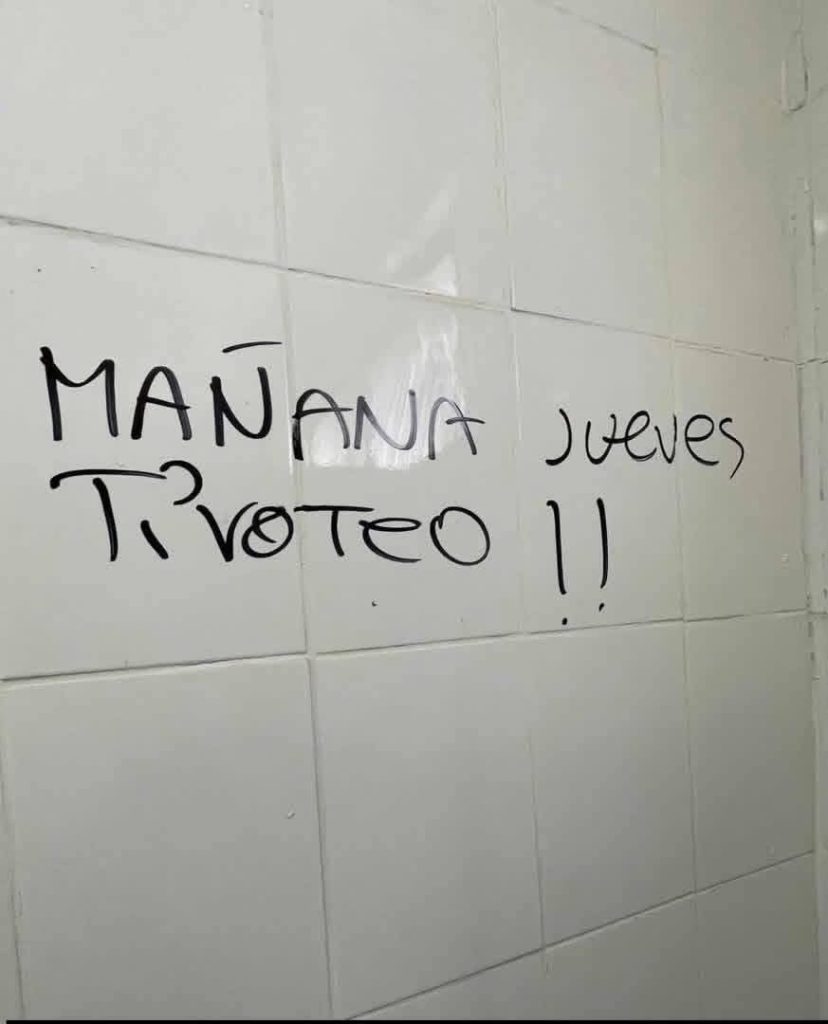 MAÑANA Jueves
Ti'voteo !!